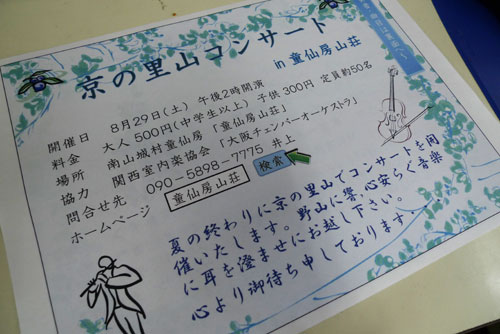 京の里山コンサート
in 童仙房山荘
開催日 8月29日(土) 午後2時開演
料金 大人 500円(中学生以上) 子供 300円 定員約50名
場所 南山城村童仙房 「童仙房山荘」
協力 関西室内楽協会 「大阪チェンバーオーケストラ」
問合せ先 090-5898-7775 井上
ホームページ 童仙房山荘 検索
夏の終わりに京の里山でコンサートを開
催いたします。野山に響く心安らぐ音楽
に耳を澄ませにお越し下さい。
心より御待ち申しております。